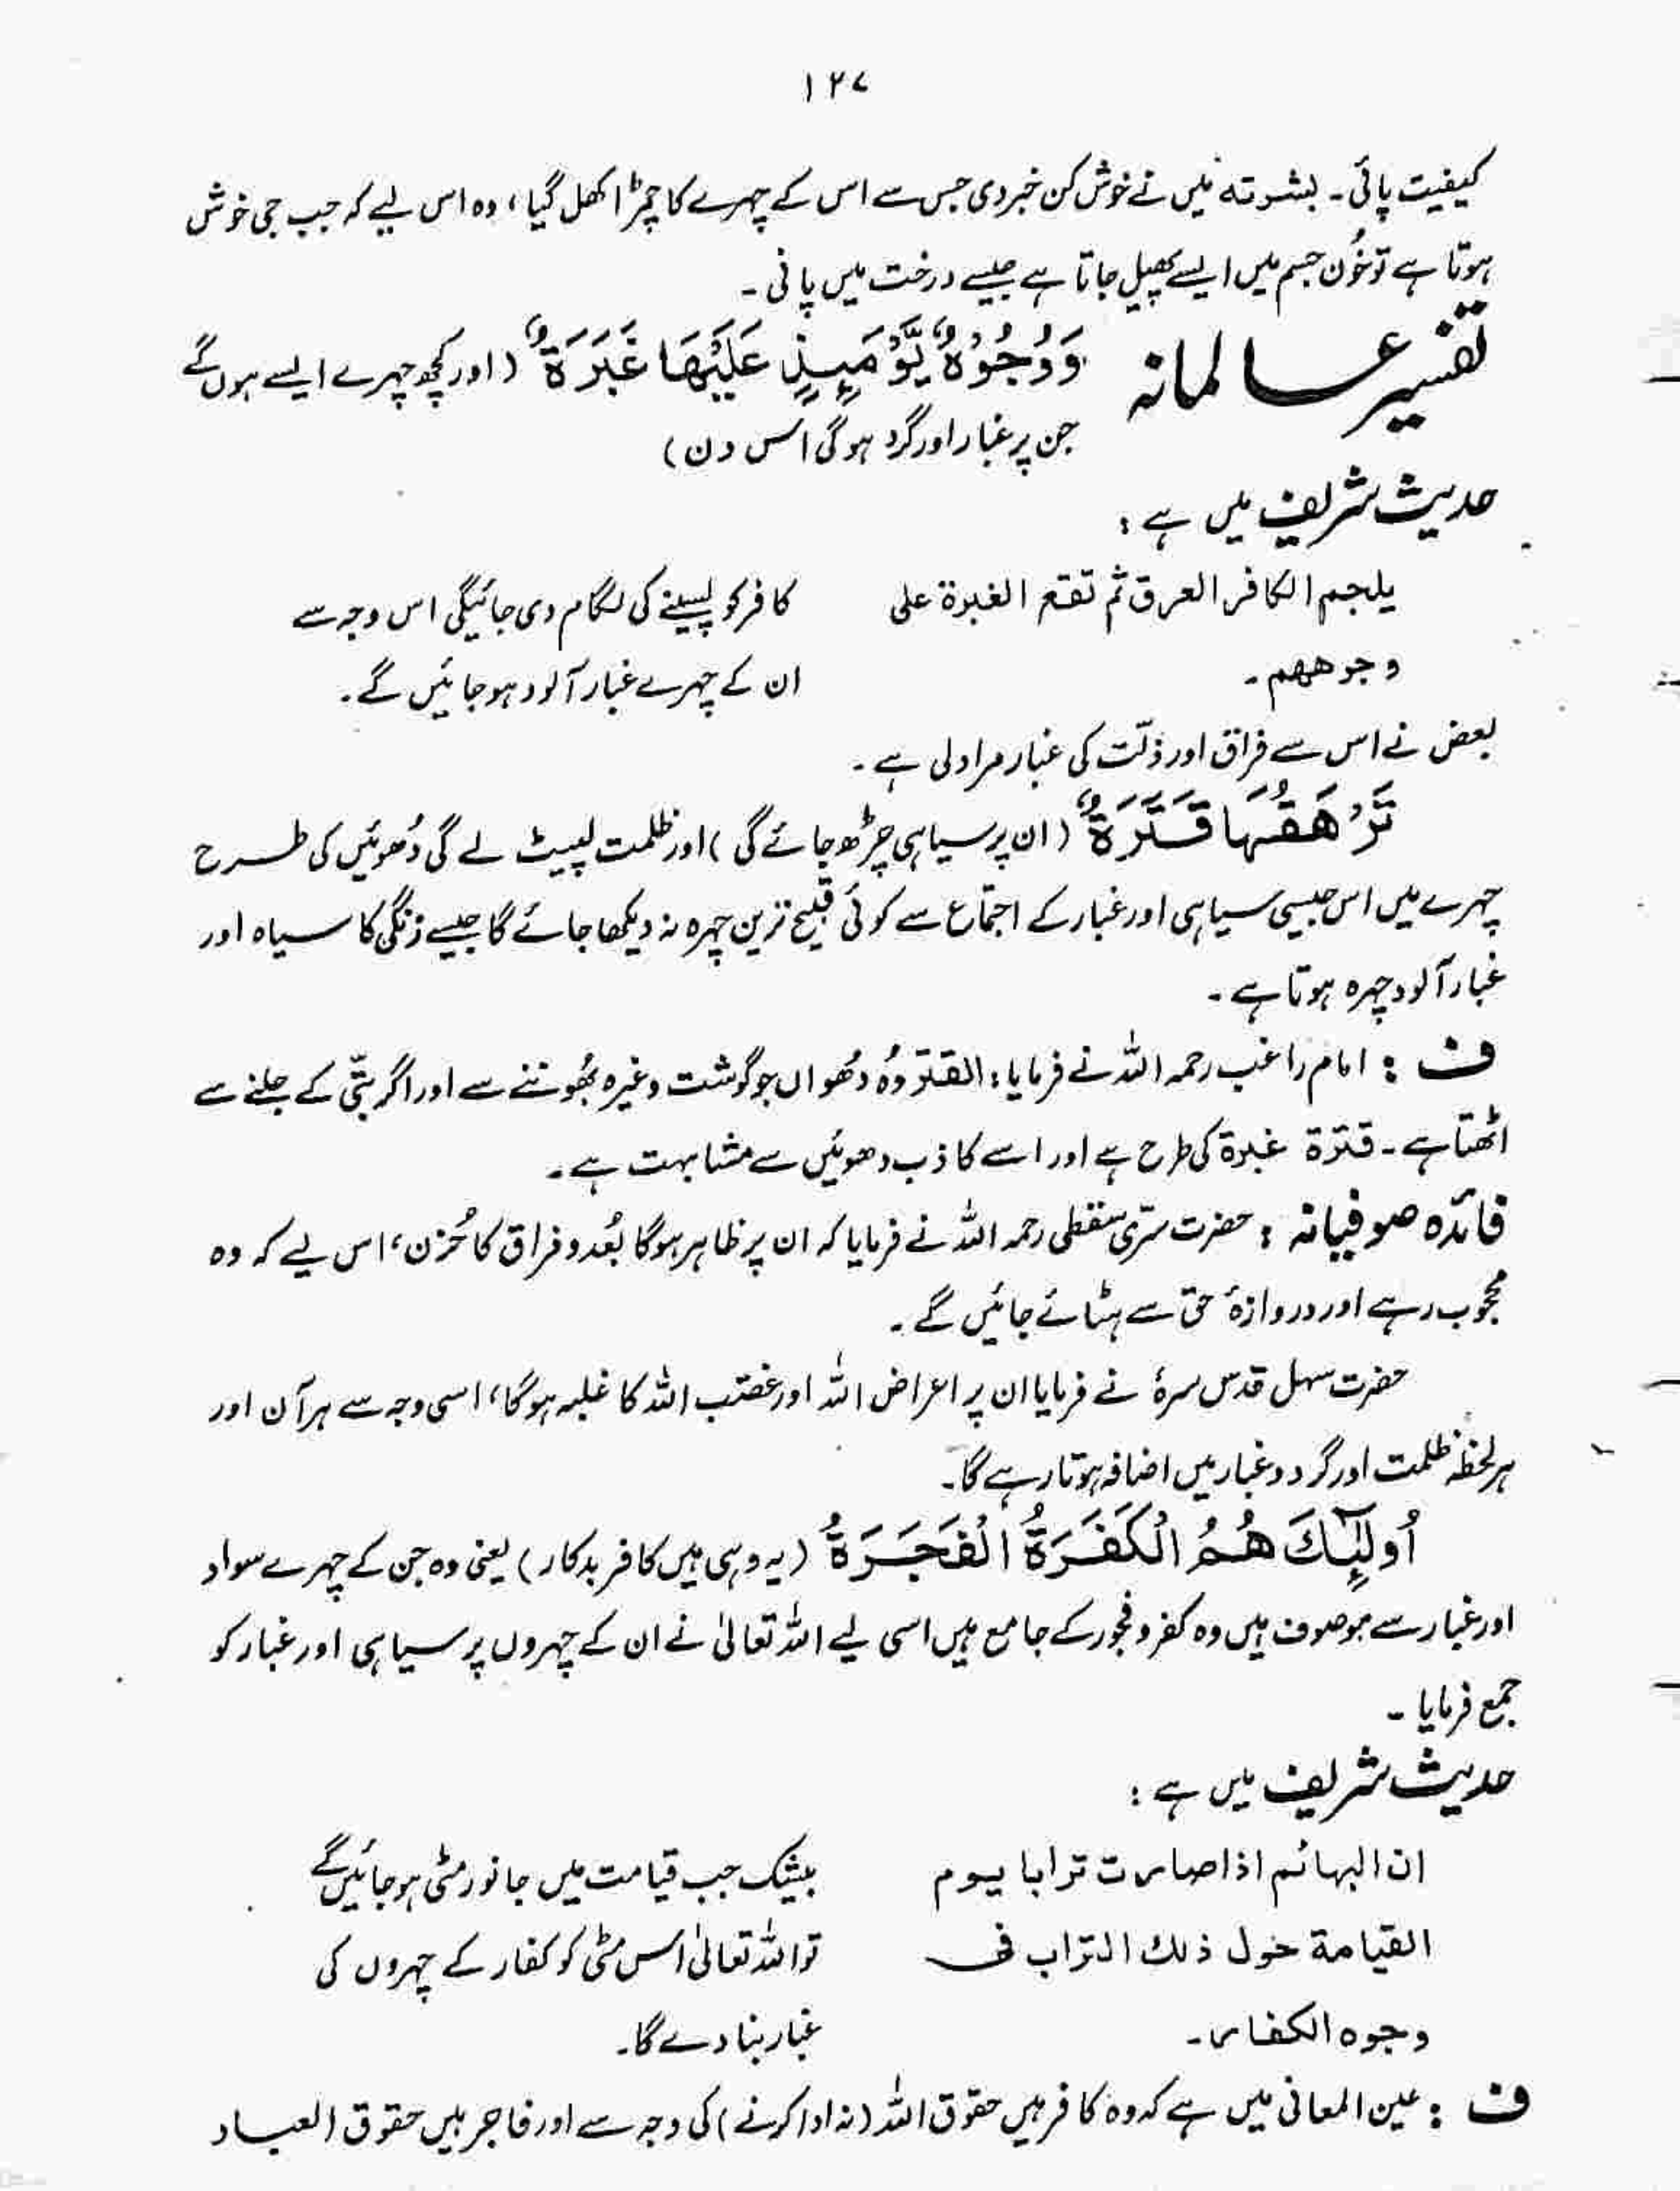 ۱۲۷
کیفیت پائی۔ بشرتہ میں نے خوش کن خبر دی جس سے اس کے چہرے کا چمڑا کھل گیا، وہ اس لیے کہ جب جی خوش
ہوتا ہے تو خُون جسم میں ایسے پھیل جاتا ہے جیسے درخت میں پانی۔
تفسیر عالمانہ وَوُجُوْهٌ يَّوْمَئِذٍ عَلَيْهَا غَبَرَةٌ (اور کچھ چہرے ایسے ہوں گے
جن پر غبار اور گرد ہوگی اس دن)
حدیث شریف میں ہے:
یلجم الکافر العرق ثم تقع الغبرة علی
وجوههم۔
کافر کو پسینے کی لگام دی جائیگی اس وجہ سے
ان کے چہرے غبار آلود ہو جائیں گے۔
بعض نے اس سے فراق اور ذلّت کی غبار مراد لی ہے۔
تَرْهَقُهَا قَتَرَةٌ (ان پر سیاہی چڑھ جائے گی) اور ظلمت لپیٹ لے گی دُھوئیں کی طرح
چہرے میں اس جیسی سیاہی اور غبار کے اجتماع سے کوئی قبیح ترین چہرہ نہ دیکھا جائے گا جیسے زنگی کا سیاہ اور
غبار آلود چہرہ ہوتا ہے۔
ف : امام راغب رحمہ اللہ نے فرمایا: القتر وُہ دُھواں جو گوشت وغیرہ بُھوننے سے اور اگر بتّی کے جلنے سے
اٹھتا ہے۔ قترة غبرة کی طرح ہے اور اسے کاذب دھوئیں سے مشابہت ہے۔
فائدہ صوفیانہ : حضرت سرّی سقطی رحمہ اللہ نے فرمایا کہ ان پر ظاہر ہوگا بُعد و فراق کا حُزن، اس لیے کہ وہ
محجوب رہے اور دروازۂ حق سے ہٹائے جائیں گے۔
حضرت سہل قدس سرہٗ نے فرمایا ان پر اعراض اللہ اور غضب اللہ کا غلبہ ہوگا، اسی وجہ سے ہر آن اور
ہر لحظہ ظلمت اور گرد و غبار میں اضافہ ہوتا رہے گا۔
اُولٰٓئِكَ هُمُ الْكَفَرَةُ الْفَجَرَةُ (یہ وہی ہیں کافر بدکار) یعنی وہ جن کے چہرے سواد
اور غبار سے موصوف ہیں وہ کفر و فجور کے جامع ہیں اسی لیے اللہ تعالیٰ نے ان کے چہروں پر سیاہی اور غبار کو
جمع فرمایا۔
حدیث شریف میں ہے:
ان البهائم اذا صارت ترابا یوم
القیامة حول ذلك التراب فی
وجوه الکفار۔
بیشک جب قیامت میں جانور مٹی ہو جائیں گے
تو اللہ تعالیٰ اس مٹی کو کفار کے چہروں کی
غبار بنا دے گا۔
ف : عین المعانی میں ہے کہ وہ کافر ہیں حقوق اللہ (نہ ادا کرنے) کی وجہ سے اور فاجر ہیں حقوق العباد